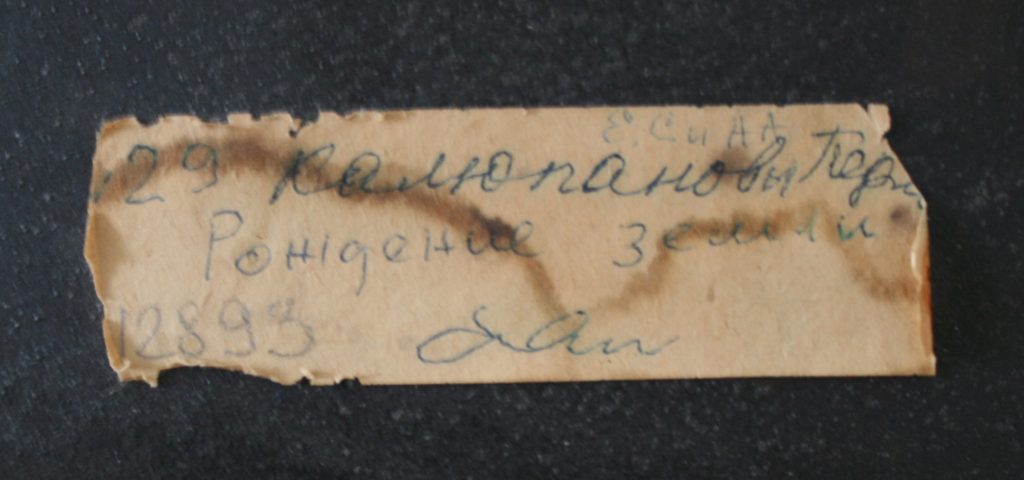 Е. С и А А
29 Калюпановы Перм
Рождение земли
12893